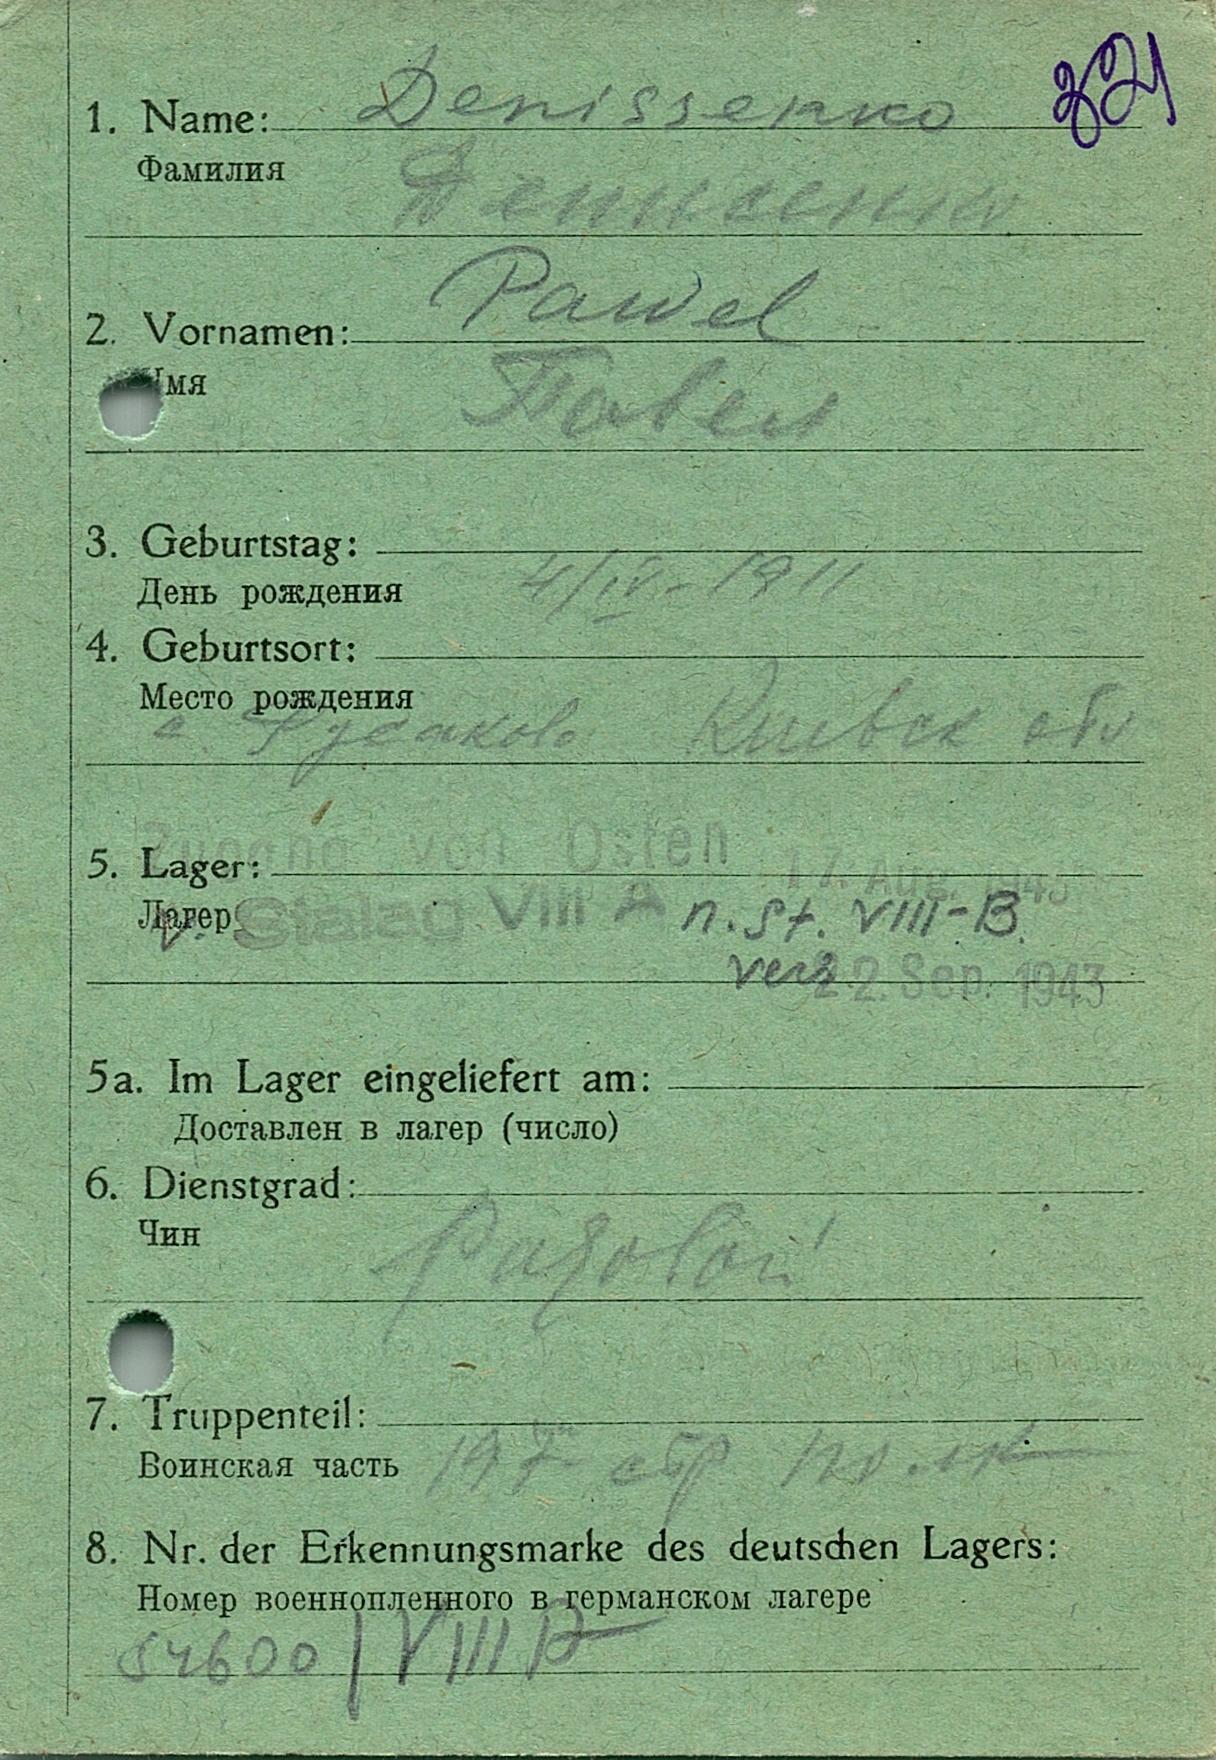 321
1. Name: Denissenko
Фамилия
Денисенко
2. Vornamen: Pawel
Имя
Павел
3. Geburtstag:
День рождения 4/IV-1911
4. Geburtsort:
Место рождения
с. Гусаково Киевск обл
Zugang von Osten
5. Lager: 17. Aug. 1943
Лагер v. Stalag VIII A n. St. VIII-B.
vers. 22. Sep. 1943
5a. Im Lager eingeliefert am:
Доставлен в лагер (число)
6. Dienstgrad:
Чин
рядовой
7. Truppenteil:
Воинская часть 197 стр полк
8. Nr. der Erkennungsmarke des deutschen Lagers:
Номер военнопленного в германском лагере
54600/VIII B